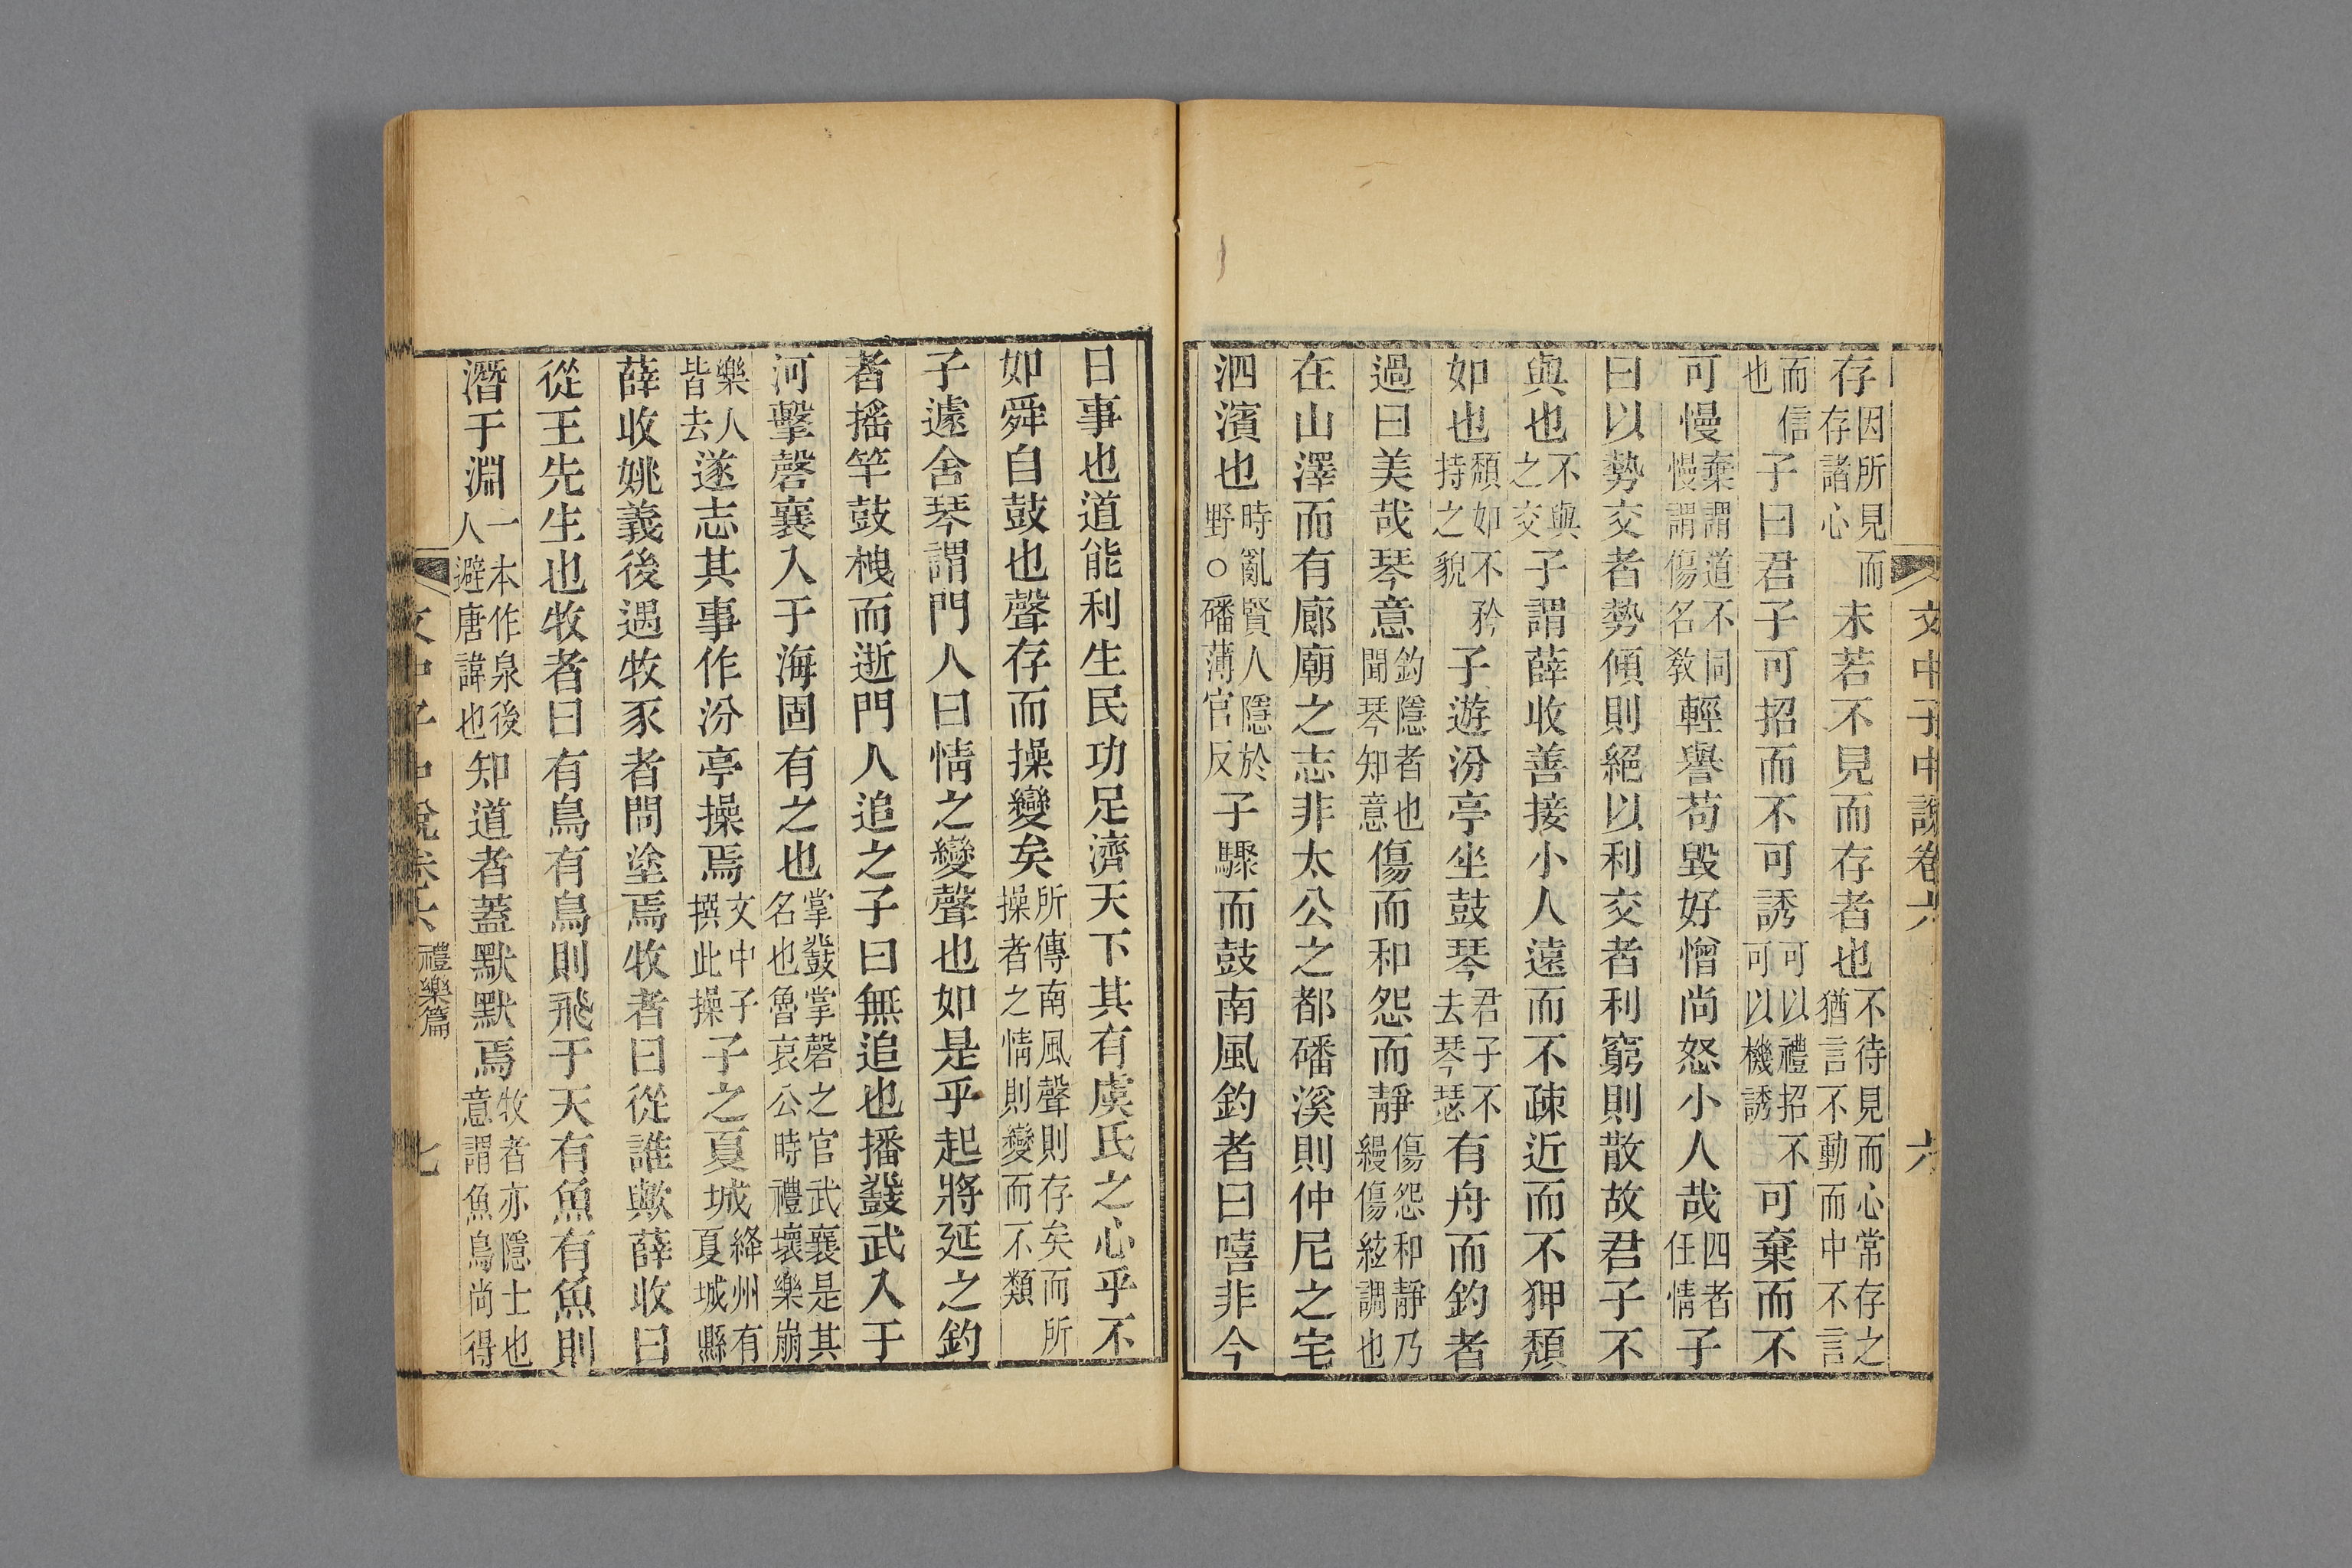 文中子中說卷六 六
存因所見而存諸心未若不見而存者也不待見而心常存之猶言不動而中不言
而信也子曰君子可招而不可誘可以禮招不可以機誘可棄而不
可慢棄謂道不同慢謂傷名教輕譽苟毀好憎尚怒小人哉四者任情子
曰以勢交者勢傾則絕以利交者利窮則散故君子不
與也不與之交子謂薛收善接小人遠而不疎近而不狎頹
如也頹如不矜持之貌子遊汾亭坐鼓琴君子不去琴瑟有舟而釣者
過曰美哉琴意釣隱者也聞琴知意傷而和怨而靜傷怨和靜乃縵傷絃調也
在山澤而有廊廟之志非太公之都磻溪則仲尼之宅
泗濱也時亂賢人隱於野○磻薄官反子驟而鼓南風釣者曰嘻非今
日事也道能利生民功足濟天下其有虞氏之心乎不
如舜自鼓也聲存而操變矣所傳南風聲則存矣而所操者之情則變而不類
子遽舍琴謂門人曰情之變聲也如是乎起將延之釣
者搖竿鼓栧而逝門人追之子曰無追也播鼗武入于
河擊磬襄入于海固有之也掌鼗掌磬之官武襄是其名也魯哀公時禮壞樂崩
樂人皆去遂志其事作汾亭操焉文中子撰此操子之夏城絳州有夏城縣
薛收姚義後遇牧豕者問塗焉牧者曰從誰歟薛收曰
從王先生也牧者曰有鳥有鳥則飛于天有魚有魚則
潛于淵一本作泉後人避唐諱也知道者蓋默默焉牧者亦隱士也意謂魚鳥尚得
文中子中說卷六 禮樂篇 七